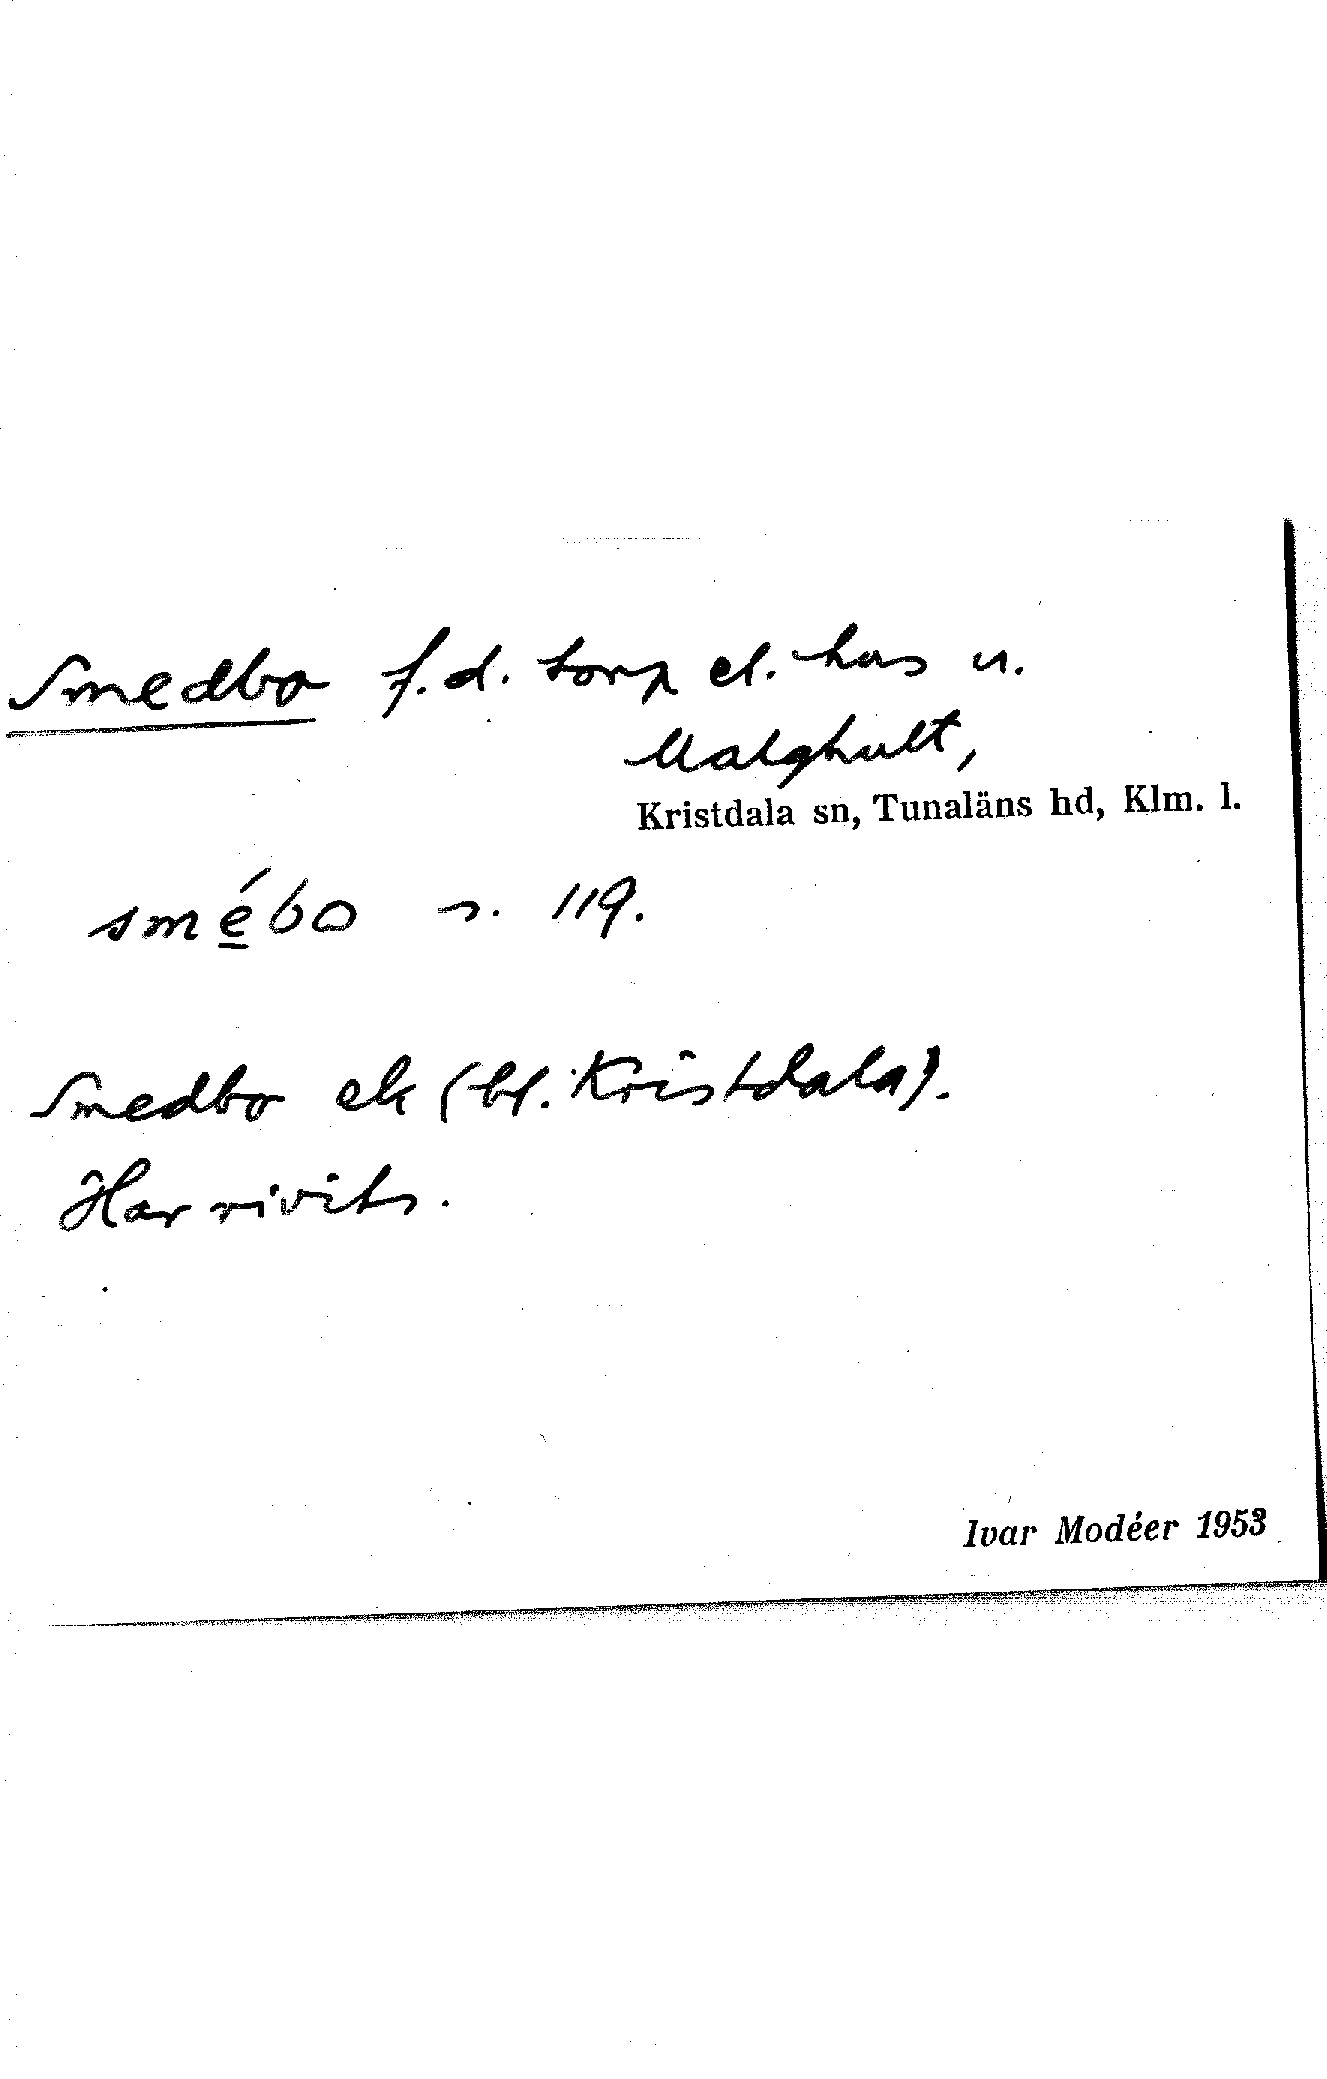 Smedbo f.d. torp el. hus u.
Malghult,
Kristdala sn, Tunaläns hd, Klm. l.
smébo s. 119.
Smedbo ek (bl. Kristdala).
Har rivits.
Ivar Modéer 1953